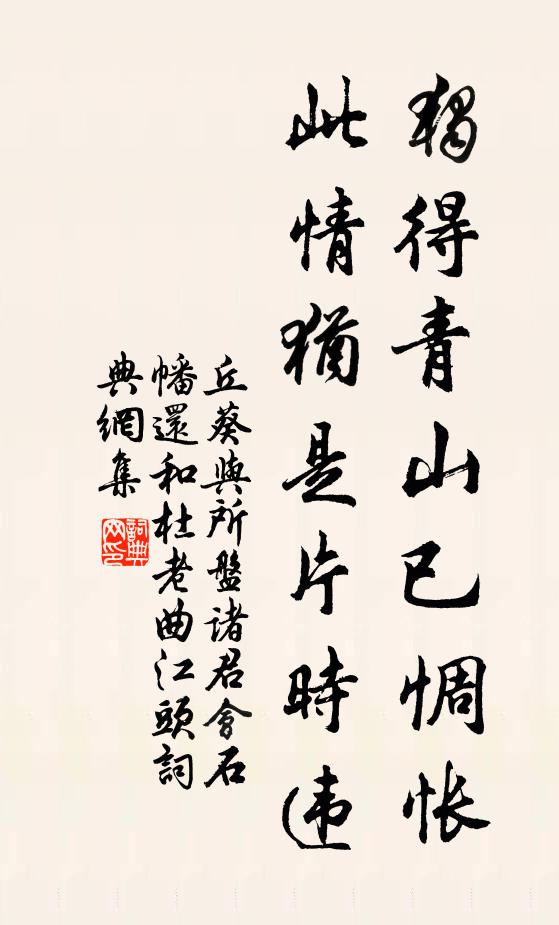 獨得青山已惆怅
此情猶是片時违
丘葵與所盤诸君會石
幡還和杜老曲江頭詞
典網集
詞典網印